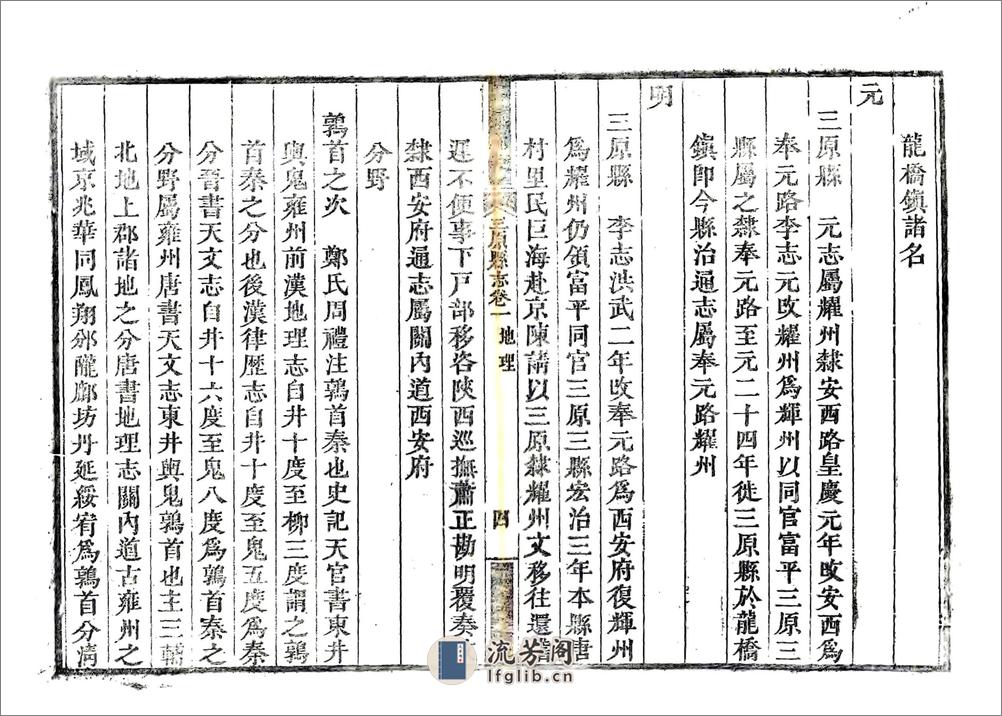 龍橋鎮諸名
元
三原縣　元志屬耀州隸安西路皇慶元年改安西爲
奉元路李志元改耀州爲輝州以同官富平三原三
縣屬之隸奉元路至元二十四年徙三原縣於龍橋
鎮即今縣治通志屬奉元路耀州
明
三原縣　李志洪武二年改奉元路爲西安府復輝州
爲耀州仍領富平同官三原三縣宏治三年本縣唐
村里民巨海赴京陳請以三原隸耀州文移往還
三原縣志卷一　地理　四
遲不便事下戶部移咨陝西巡撫蕭正勘明覆奏
隸西安府通志屬關內道西安府
分野
鶉首之次　鄭氏周禮注鶉首秦也史記天官書東井
輿鬼雍州前漢地理志自井十度至柳三度謂之鶉
首秦之分也後漢律歷志自井十度至鬼五度爲秦
分晉書天文志自井十六度至鬼八度爲鶉首秦之
分野屬雍州唐書天文志東井輿鬼鶉首也主三輔
北地上郡諸地之分唐書地理志關內道古雍州之
域京兆華同鳳翔邠隴鄜坊丹延綏宥爲鶉首分
流芳阁
lfglib.cn